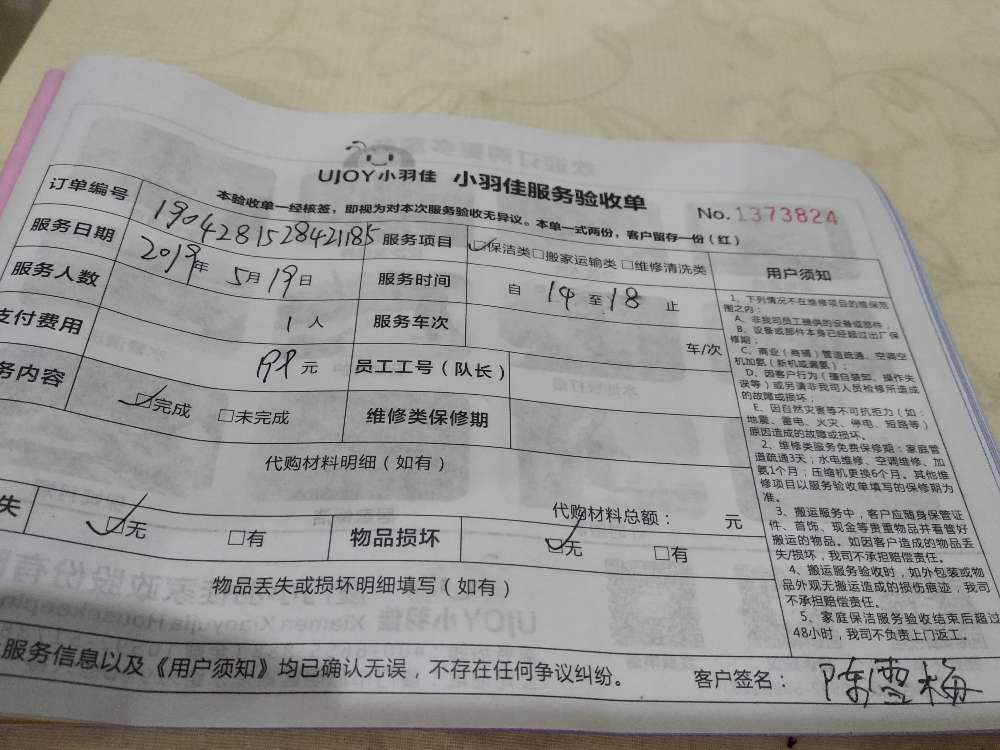 UJOY小羽佳 小羽佳服务验收单
No.1373824
本验收单一经核签，即视为对本次服务验收无异议。本单一式两份，客户留存一份（红）
订单编号 19042815284211​85 服务项目 ☑保洁类□搬家运输类□维修清洗类
服务日期 2019年5月19日 服务时间 自 14 至 18 止
服务人数 1人 服务车次 车/次
支付费用 元 员工工号（队长）
务内容 ☑完成 □未完成 维修类保修期
代购材料明细（如有）
代购材料总额： 元
失 ☑无 □有 物品损坏 ☑无 □有
物品丢失或损坏明细填写（如有）
服务信息以及《用户须知》均已确认无误，不存在任何争议纠纷。
客户签名：陈雪梅
用户须知
1、下列情况不在维修项目的维保范
围之内：
A、非我司员工提供的设备或部件；
B、设备或部件本身已经超过出厂保
修期；
C、商业（商铺）管道疏通、空调空
机加氨（新机或漏氨）；
D、因客户行为（擅自装卸、操作失
误等）或另请非我司人员检修所造成
的故障或损坏；
E、因自然灾害等不可抗拒力（如：
地震、雷电、火灾、停电、短路等）
原因造成的故障或损坏。
2、维修类服务免费保修期：家庭管
道疏通3天；水电维修、空调维修、加
氨1个月；压缩机更换6个月。其他维
修项目以服务验收单填写的保修期为
准。
3、搬运服务中，客户应随身保管证
件、首饰、现金等贵重物品并看管好
搬运的物品。如因客户造成的物品丢
失/损坏，我司不承担赔偿责任。
4、搬运服务验收时，如外包装或物
品外观无搬运造成的损伤痕迹，我司
不承担赔偿责任。
5、家庭保洁服务验收结束后超过
48小时，我司不负责上门返工。